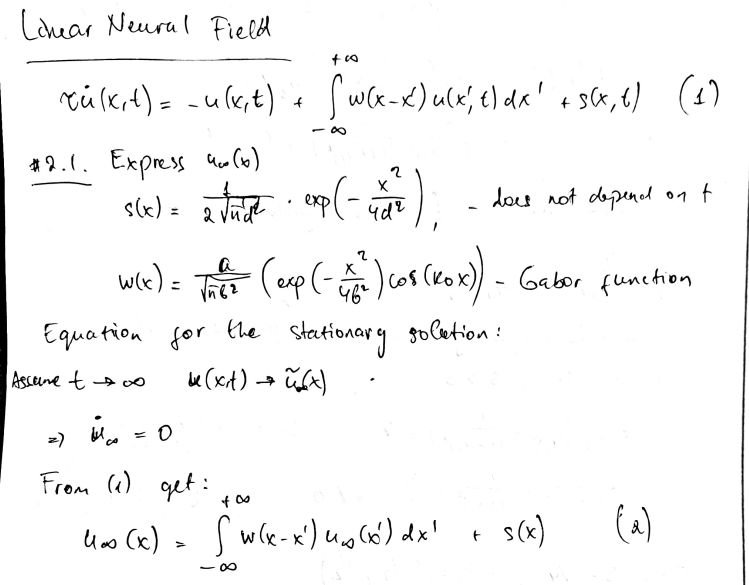 Linear Neural Field
τu̇(x,t) = -u(x,t) + ∫_{-∞}^{+∞} w(x-x')u(x',t)dx' + s(x,t) (1)
#2.1. Express u∞(x)
s(x) = 1/(2√(πd²)) · exp(-x²/(4d²)), - does not depend on t
w(x) = a/√(πб²) (exp(-x²/(4б²))cos(k₀x)) - Gabor function
Equation for the stationary solution:
Assume t → ∞ u(x,t) → ũ∞(x)
=> u̇∞ = 0
From (1) get:
u∞(x) = ∫_{-∞}^{+∞} w(x-x')u∞(x')dx' + s(x) (2)